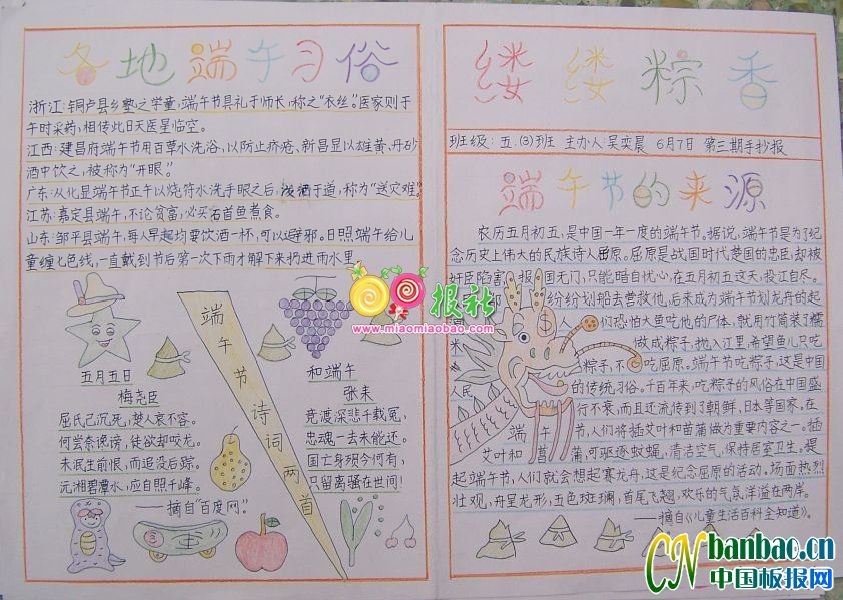 各地端午习俗
浙江:铜卢县乡塾之学童,端午节具礼于师长,称之"衣丝。"医家则于
午时采药,相传此日天医星临空。
江西:建昌府端午节用百草水洗浴,以防止疥疮、新昌显以雄黄、丹砂
酒中饮之,被称为"开眼。"
广东:从化显端午节正午以烧符水洗手眼之后,泼洒于道,称为"送灾难"。
江苏:嘉定县端午,不论贫富,必买石首鱼煮食。
山东:邹平县端午,每人早起均要饮酒一杯,可以避邪。日照端午给儿
童缠七色线,一直戴到节后第一次下雨才解下来扔进雨水里
端午节诗词两首
五月五日
梅尧臣
屈氏已沉死,楚人哀不容。
何尝奈谗谤,徒欲却咬龙。
未泯生前恨,而追没后踪。
沅湘碧潭水,应自照千峰。
——摘自"百度网"。
和端午
张耒
竞渡深悲千载冤,
忠魂一去未能还。
国亡身殒今何有,
只留离骚在世间!
缕缕粽香
班级:五.(3)班 主办人:吴奕晨 6月7日 第三期手抄报
端午节的来源
农历五月初五,是中国一年一度的端午节。据说,端午节是为了纪
念历史上伟大的民族诗人屈原。屈原是战国时代楚国的忠臣,却被
奸臣陷害,报国无门,只能暗自忧心,在五月初五这天,投江自尽。
纷纷划船去营救他,后来成为端午节划龙舟的起
人们恐怕大鱼吃他的尸体,就用竹筒装了糯
米做成粽子,抛入江里,希望鱼儿只吃
粽子,不吃屈原。端午节吃粽子,这是中国
人民的传统习俗。千百年来,吃粽子的风俗在中国盛
行不衰,而且还流传到了朝鲜,日本等国家,在
端午节,人们将插艾叶和菖蒲做为重要内容之一。插
艾叶和菖蒲,可驱逐蚊蝇,清洁空气,保持居室卫生。提
起端午节,人们就会想起赛龙舟,这是纪念屈原的活动。场面热烈
壮观,舟呈龙形,五色斑斓,首尾飞翘,欢乐的气氛洋溢在两岸。
——摘自《儿童生活百科全知道》。
报社
www.miaomiaobao.com
CN banbao.cn
中国板报网